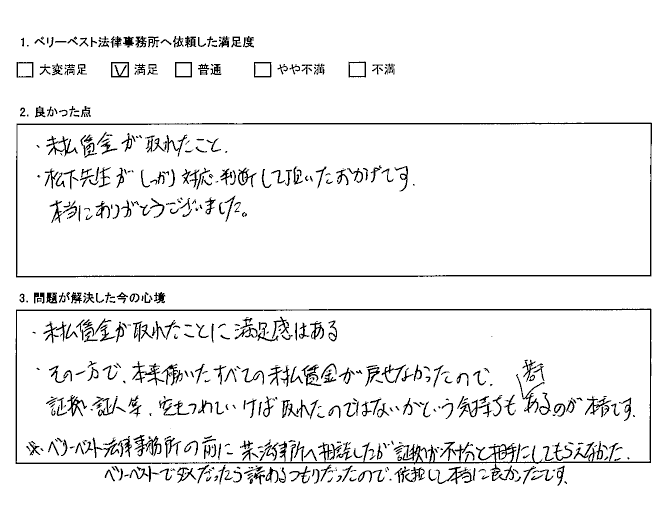 1. ベリーベスト法律事務所へ依頼した満足度
大変満足 満足 普通 やや不満 不満
2. 良かった点
・未払賃金が取れたこと.
・松下先生がしっかり対応.判断して頂いたおかげです.
本当にありがとうございました。
3. 問題が解決した今の心境
・未払賃金が取れたことに満足感はある
・その一方で、本来働いたすべての未払賃金が戻せなかったので.
証拠.証人等、突きつめていけば取れたのではないかという気持ちも 若干 あるのが本音です.
※ベリーベスト法律事務所の前に 某法律事務所へ相談したが証拠が不十分と相手にしてもらえなかった.
ベリーベストでダメだったら諦めるつもりだったので、依頼して本当に良かったです.